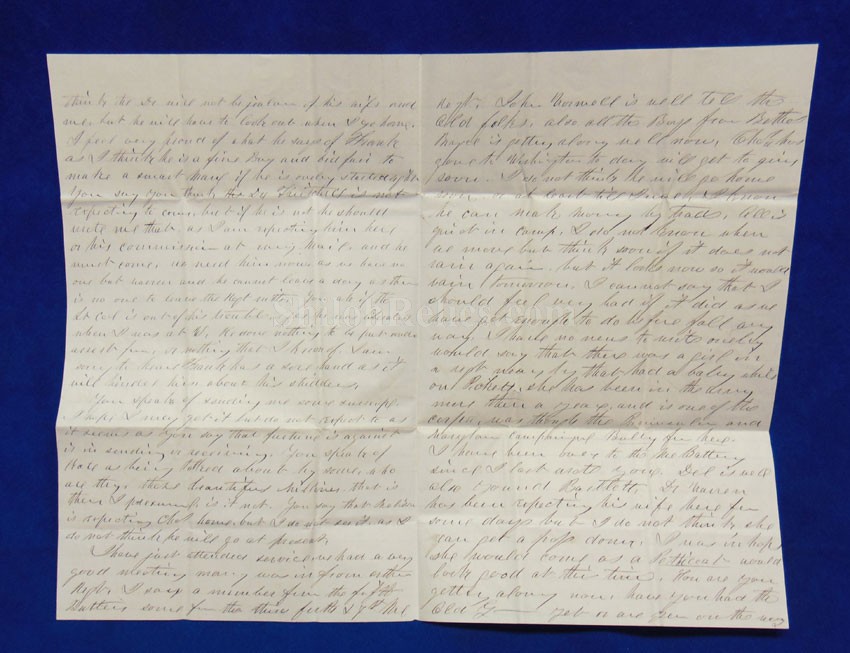 think the Dr will not be jealous of his wife and
me, but he will have to look out when I go home.
I feel very proud of what he says of Frank
as I think he is a fine Boy and bids fair to
make a smart man if he is only started right
You say you think is not
expecting to come, but if he is not he should
write me that as I am expecting him here
or his commission at every mail, and he
must come, we need him now as we have no
one but and he cannot leave a day as there
is no one to leave the Regt with. You ask if the
Lt Col is out of his trouble,
when I was at W, He done nothing to be put under
arrest for, or nothing that I know of. I am
sorry to hear Frank has a sore hand as it
will hinder him about his studies.
You speak of sending me some
I hope I may get it but do not expect to as
it seems as you say that fortune is against
us in sending or receiving. You speak of
as being talked about by some, who
are they, that is
then I presume is it not. You say that
is expecting Chas home, but I do not see it, as I
do not think he will go at present.
I have just attended service, we had a very
good meeting many was in from other
Regts. I saw a number from the fifth
Battery some from the third fourth & 7th Me
Regt. John is well tell the
Old folks, also all the Boys from
is getting along well now, Chas has
gone to Washington to day will get to going
soon. I do not think he will go home
at least till I know
he can make money by trade, All is
quiet in camp, I do not know when
we move but think soon if it does not
rain again, but it looks now as it would
rain tomorrow. I can not say that I
should feel very bad if it did as we
have got enough to do before fall any
way. I have no news to write only
would say that there was a girl in
a regt near by that had a baby while
on Picket, she has been in the Army
more than a year, and is one of the
was through the Peninsular and
Maryland campaign Bully for her.
I have been over to the Me Battery
since I last wrote you. Del is well
also Bartlett, Dr Warren
has been expecting his wife here for
some days but I do not think she
can get a pass down. I was in hopes
she would come as a Petticoat would
look good at this time. How are you
getting along now, have you had the
Old yet or are you on the way